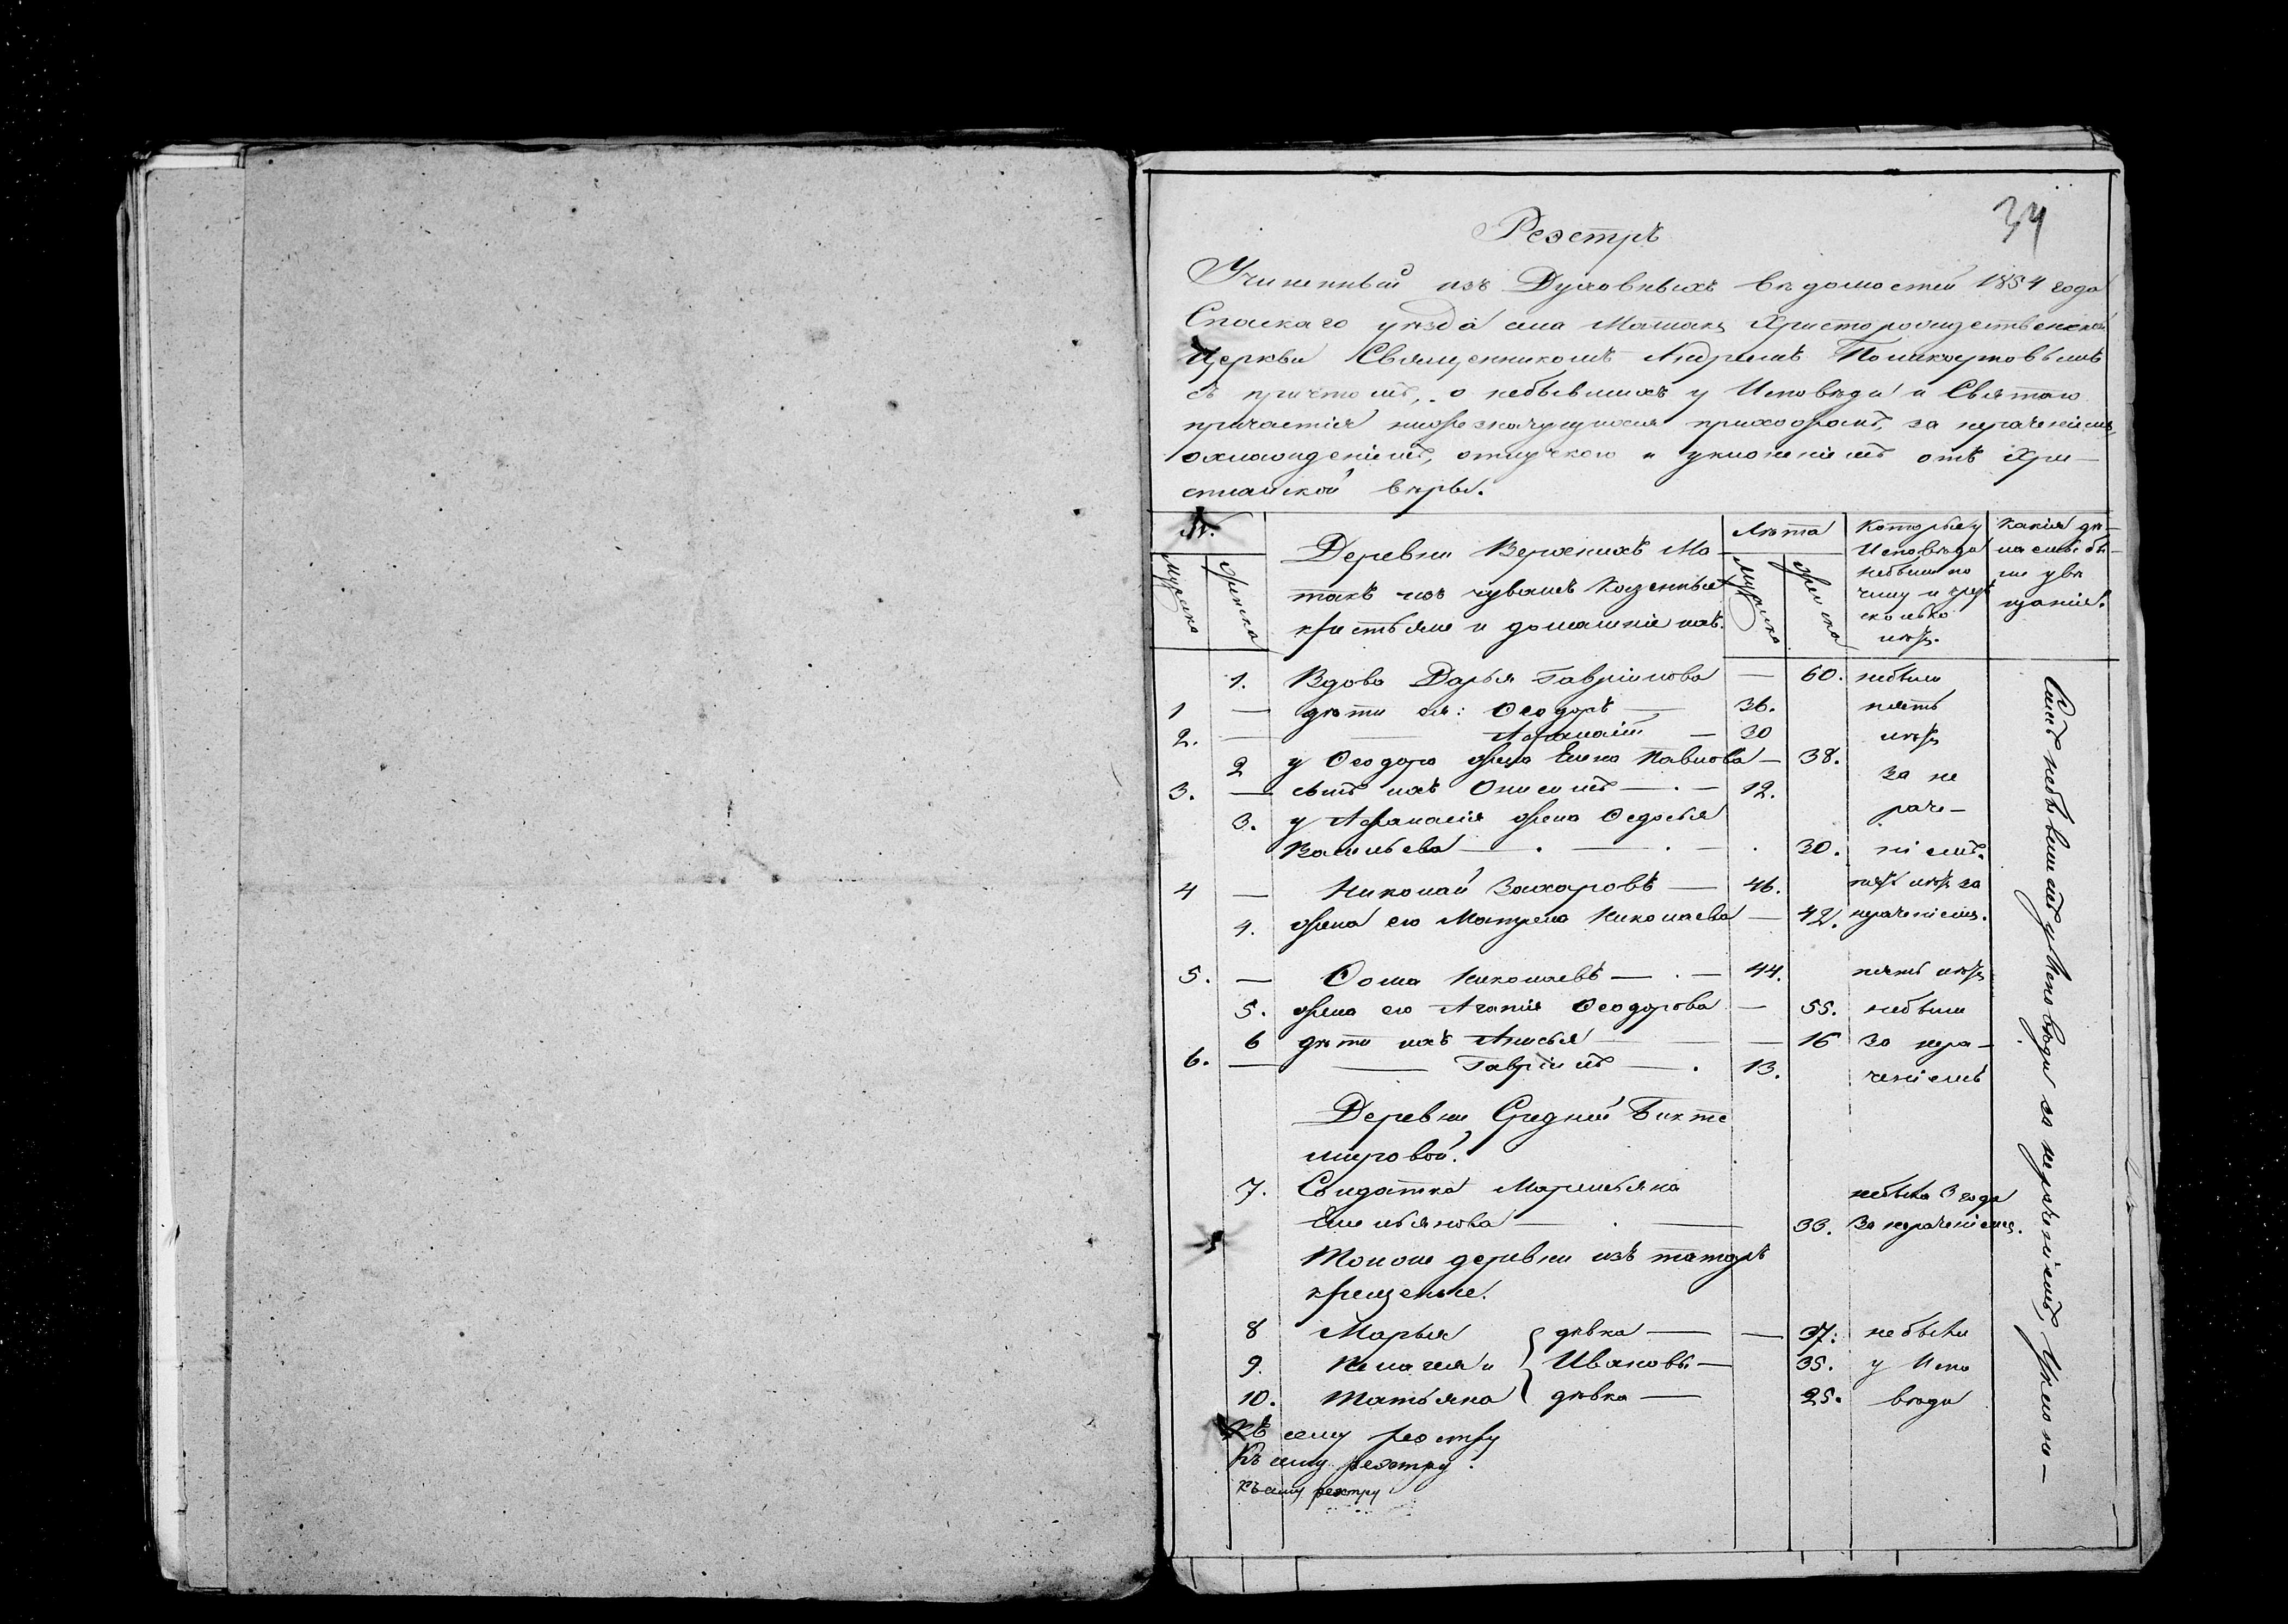 34
Реэстръ
Учиненный изъ Духовныхъ вѣдомостей 1854 года
Спаскаго уѣзда села Матакъ Христорождественской
Церкви Священникомъ Андреемъ Поликарповымъ
съ причтомъ, о небывшихъ у Исповѣди и Святаго
причастія нижезначущихся прихожанъ, за нераченіемъ,
охлажденіемъ, отлучкою и уклоненіемъ отъ Хри-
стианской вѣры.
№.
мужска
женска
Деревни Верхнихъ Ма
такъ изъ чувашъ казенные
крестьяне и домашніе ихъ.
Лѣта
Мужска
женска
Которые у
Исповѣди
небыли по
чему и
сколько
лѣтъ.
Какія дѣ-
ланы бы-
ли увѣ
щанія.
1. Вдова Дарья Гавріилова — 60. небыли
1 — дѣти ея: Ѳеодоръ — 36. пять
2. — — Афанасій — 30 лѣтъ
2 у Ѳеодора жена Елена Павлова — 38. За не
3. — сынъ ихъ Онисимъ — 12. раче-
3. у Афанасія жена Ѳедосья
Васильева — 30. ніемъ.
4 — Николай Захаровъ — 46. пять лѣтъ за
4. жена его Матрена Николаева — 42. нераченіемъ.
5. — Ѳома Николаевъ — 44. пять лѣтъ
5. жена его Агапія Ѳеодорова — 55. небыли
6 дѣти ихъ Анисья — 16 За нера-
6. — — Гавріилъ — 13. ченіемъ
Деревни Средней Бикте
мировой.
7. Солдатка Маремьяна небыла 3 года
Емельянова — 33. За нераченіемъ.
Тойже деревни изъ татаръ
крещеные.
8 Марья дѣвка — 37. небыли
9. Пелагея и Ивановы — 35. у Испо
10. Татьяна дѣвка — 25. вѣди
Симъ небывшимъ у Исповѣди за нераченіемъ, Уклоне-
Къ сему реэстру
Къ сему реэстру.
Къ сему реэстру